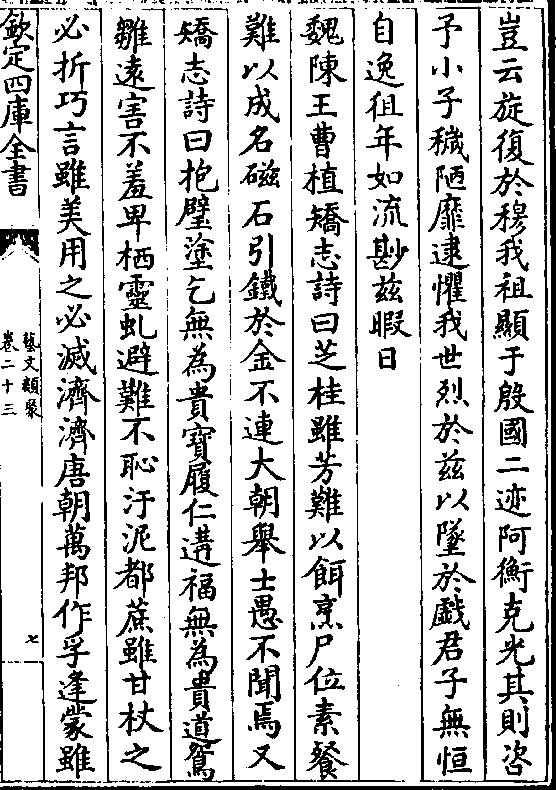 豈云旋復於穆我祖顯于殷國二迹阿衡克光其則咨
予小子穢陋靡逮懼我世烈於茲以墜於戲君子無恒
自逸徂年如流尠茲暇日
魏陳王曹植矯志詩曰芝桂雖芳難以餌烹尸位素餐
難以成名磁石引鐵於金不連大朝舉士愚不聞焉又
矯志詩曰抱璧塗乞無為貴寶履仁遘福無為貴道鴛
雛遠害不羞卑栖靈虬避難不恥汙泥都蔗雖甘杖之
必折巧言雖美用之必滅濟濟唐朝萬邦作孚逢蒙雖
欽定四庫全書
藝文類聚
卷二十三
七